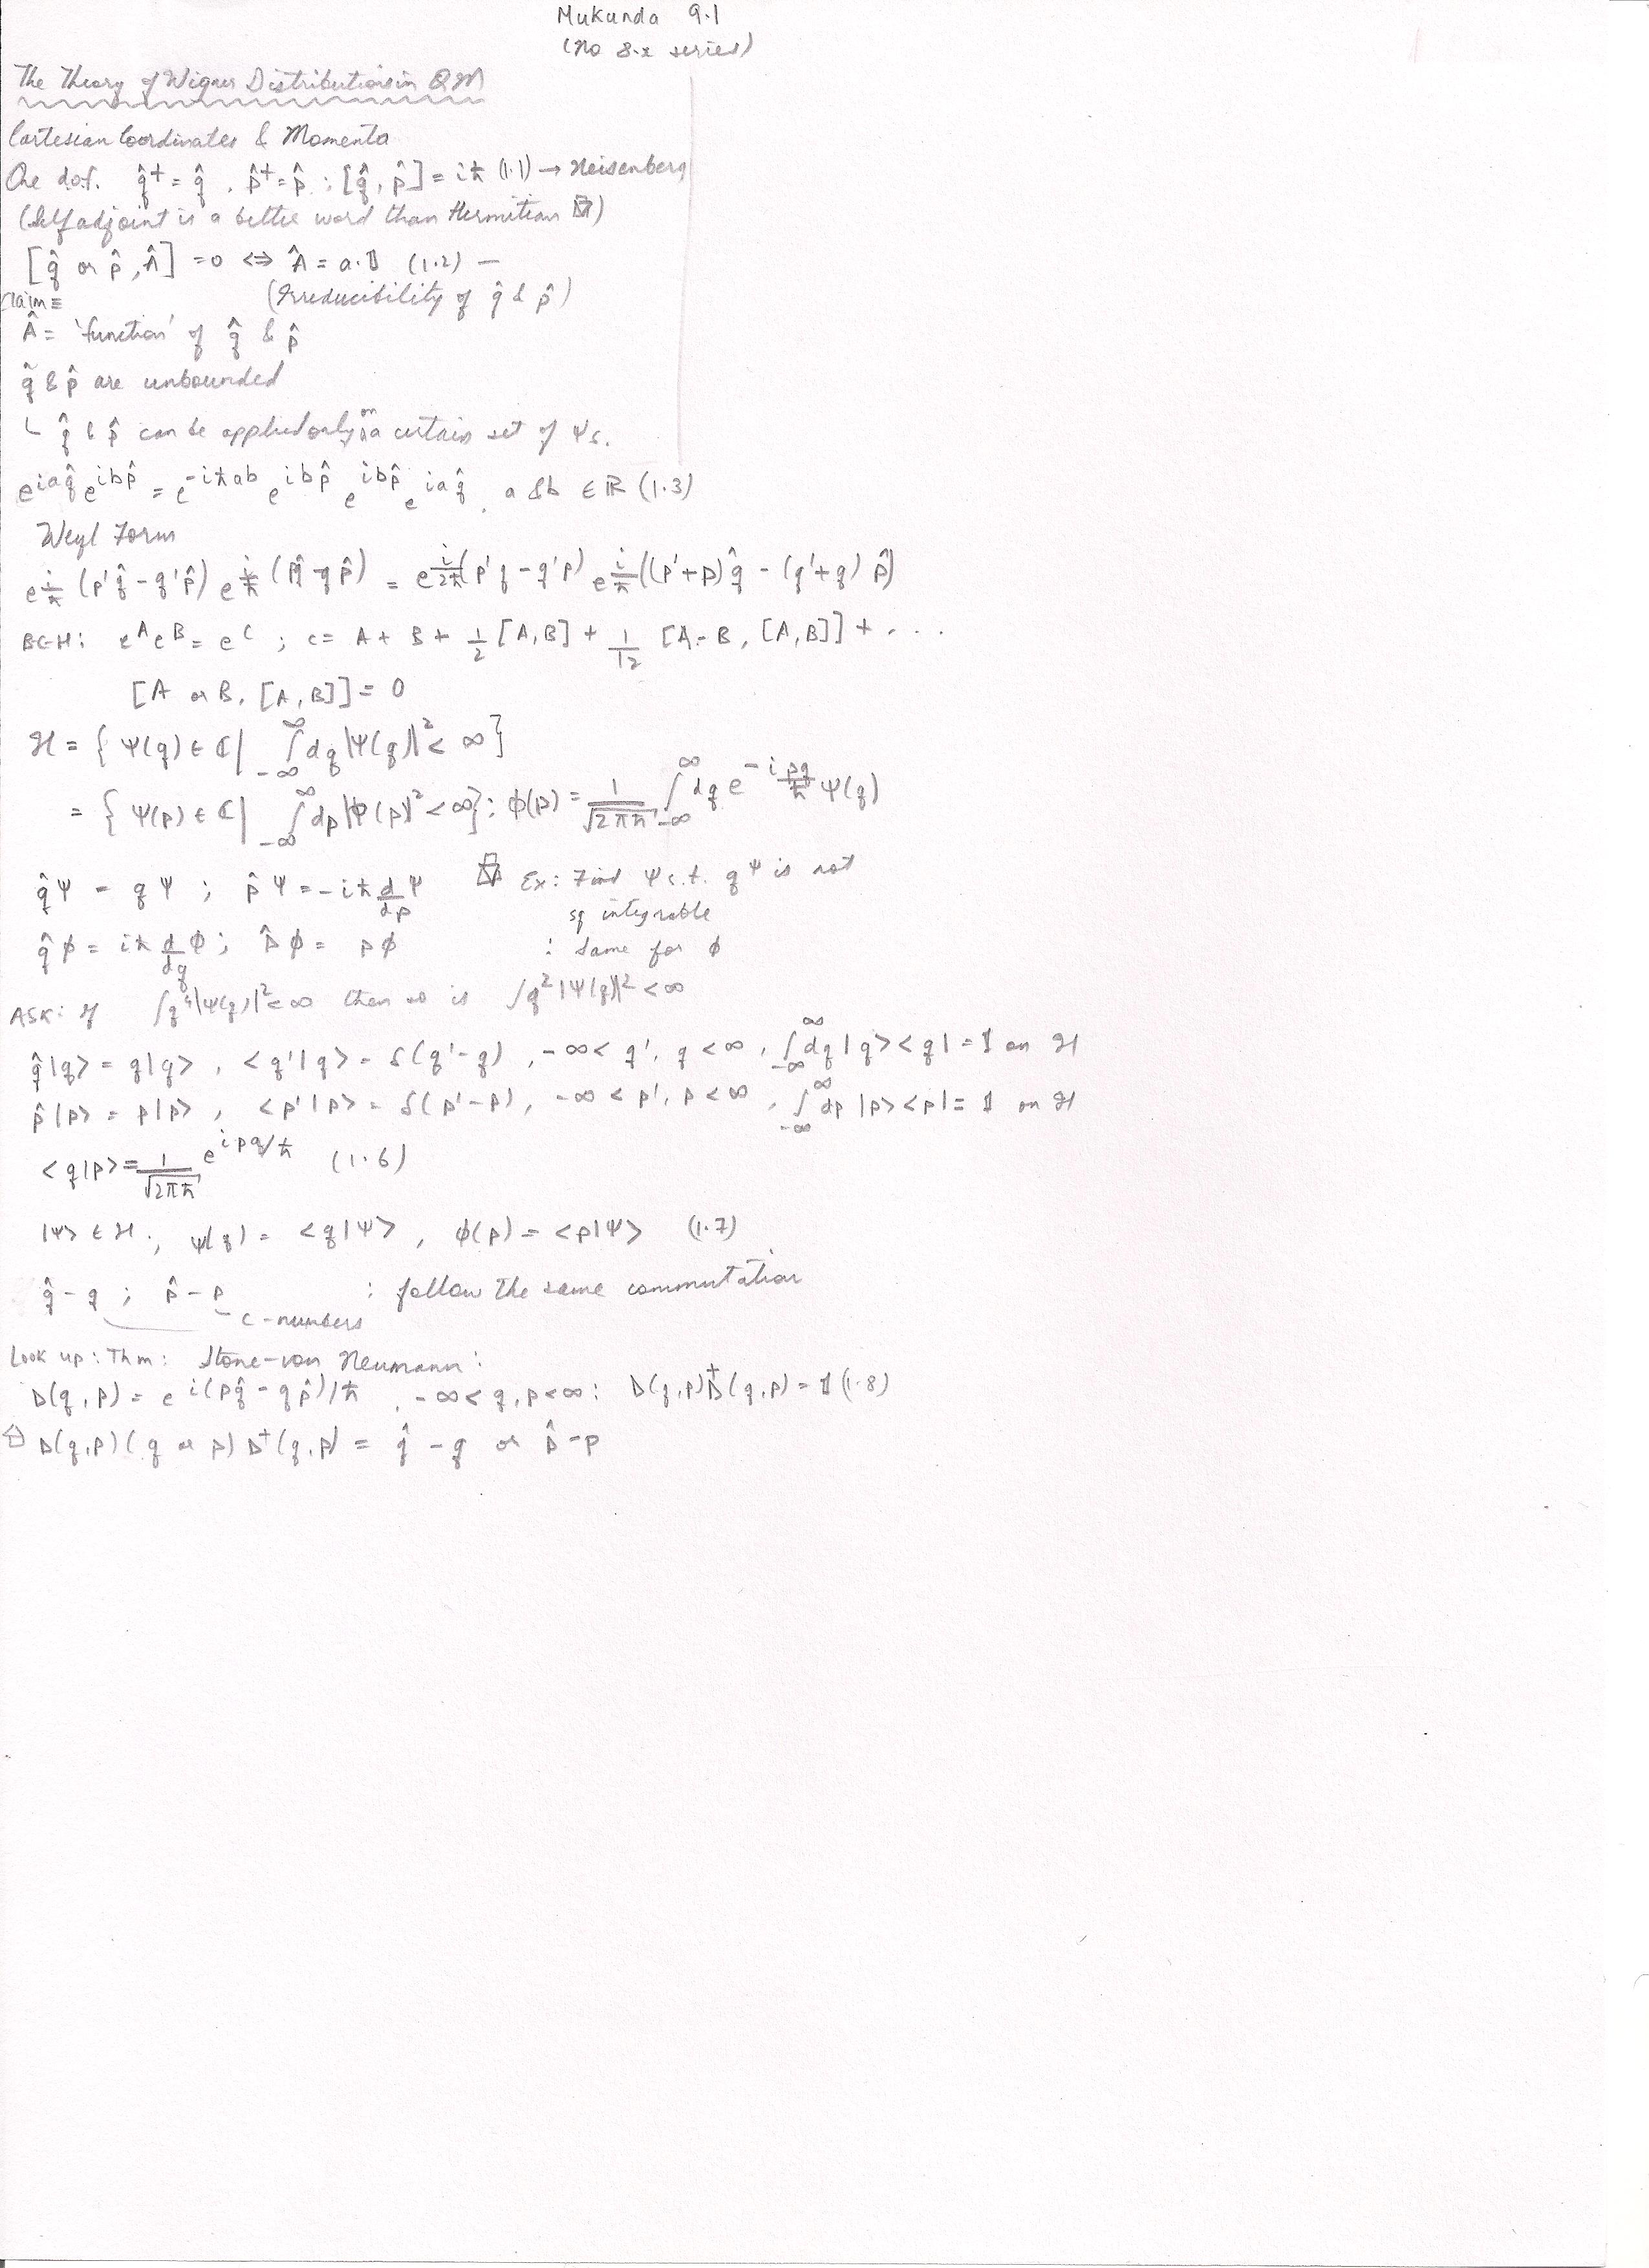 Mukunda 9.1
(No 8.x series)
The Theory of Wigner Distributions in QM
Cartesian Coordinates & Momenta
One dof. q̂† = q̂ , p̂† = p̂ ; [q̂, p̂] = iħ (1.1) → Heisenberg
(Self adjoint is a better word than Hermitian)
[q̂ or p̂, Â] = 0 ⇔ Â = a.𝟙 (1.2) —
Claim ≡ (Irreducibility of q̂ & p̂)
Â = 'function' of q̂ & p̂
q̂ & p̂ are unbounded
└ q̂ & p̂ can be applied only on a certain set of Ψs.
e^{iaq̂} e^{ibp̂} = e^{-iħab} e^{ibp̂} e^{ibp̂} e^{iaq̂} , a & b ∈ ℝ (1.3)
Weyl Form
e^{i/ħ (p'q̂ - q'p̂)} e^{i/ħ (pq̂ - qp̂)} = e^{i/2ħ (p'q - q'p)} e^{i/ħ ((p'+p)q̂ - (q'+q)p̂)}
BCH: e^A e^B = e^C ; C = A + B + 1/2 [A,B] + 1/12 [A-B, [A,B]] + ....
[A or B, [A,B]] = 0
ℋ = { Ψ(q) ∈ ℂ | ∫_{-∞}^{∞} dq |Ψ(q)|² < ∞ }
= { Ψ(p) ∈ ℂ | ∫_{-∞}^{∞} dp |Φ(p)|² < ∞ } : ϕ(p) = 1/√(2πħ) ∫_{-∞}^{∞} dq e^{-i pq/ħ} Ψ(q)
q̂Ψ = qΨ ; p̂Ψ = -iħ d/dp Ψ Ex: Find Ψ s.t. qΨ is not
sq integrable
q̂ϕ = iħ d/dq ϕ ; p̂ϕ = pϕ : Same for ϕ
ASK: If ∫q⁴|Ψ(q)|² < ∞ then so is ∫q²|Ψ(q)|² < ∞
q̂|q> = q|q> , <q'|q> = δ(q'-q) , -∞ < q', q < ∞ , ∫_{-∞}^{∞} dq |q><q| = 𝟙 on ℋ
p̂|p> = p|p> , <p'|p> = δ(p'-p) , -∞ < p', p < ∞ , ∫_{-∞}^{∞} dp |p><p| = 𝟙 on ℋ
<q|p> = 1/√(2πħ) e^{ipq/ħ} (1.6)
|Ψ> ∈ ℋ ; ψ(q) = <q|Ψ> , ϕ(p) = <p|Ψ> (1.7)
q̂ - q ; p̂ - p : follow the same commutation
- c-numbers
Look up: Thm: Stone-von Neumann:
D(q,p) = e^{i(pq̂ - qp̂)/ħ} , -∞ < q, p < ∞ : D(q,p) D†(q,p) = 𝟙 (1.8)
D(q,p) (q or p) D†(q,p) = q̂ - q or p̂ - p